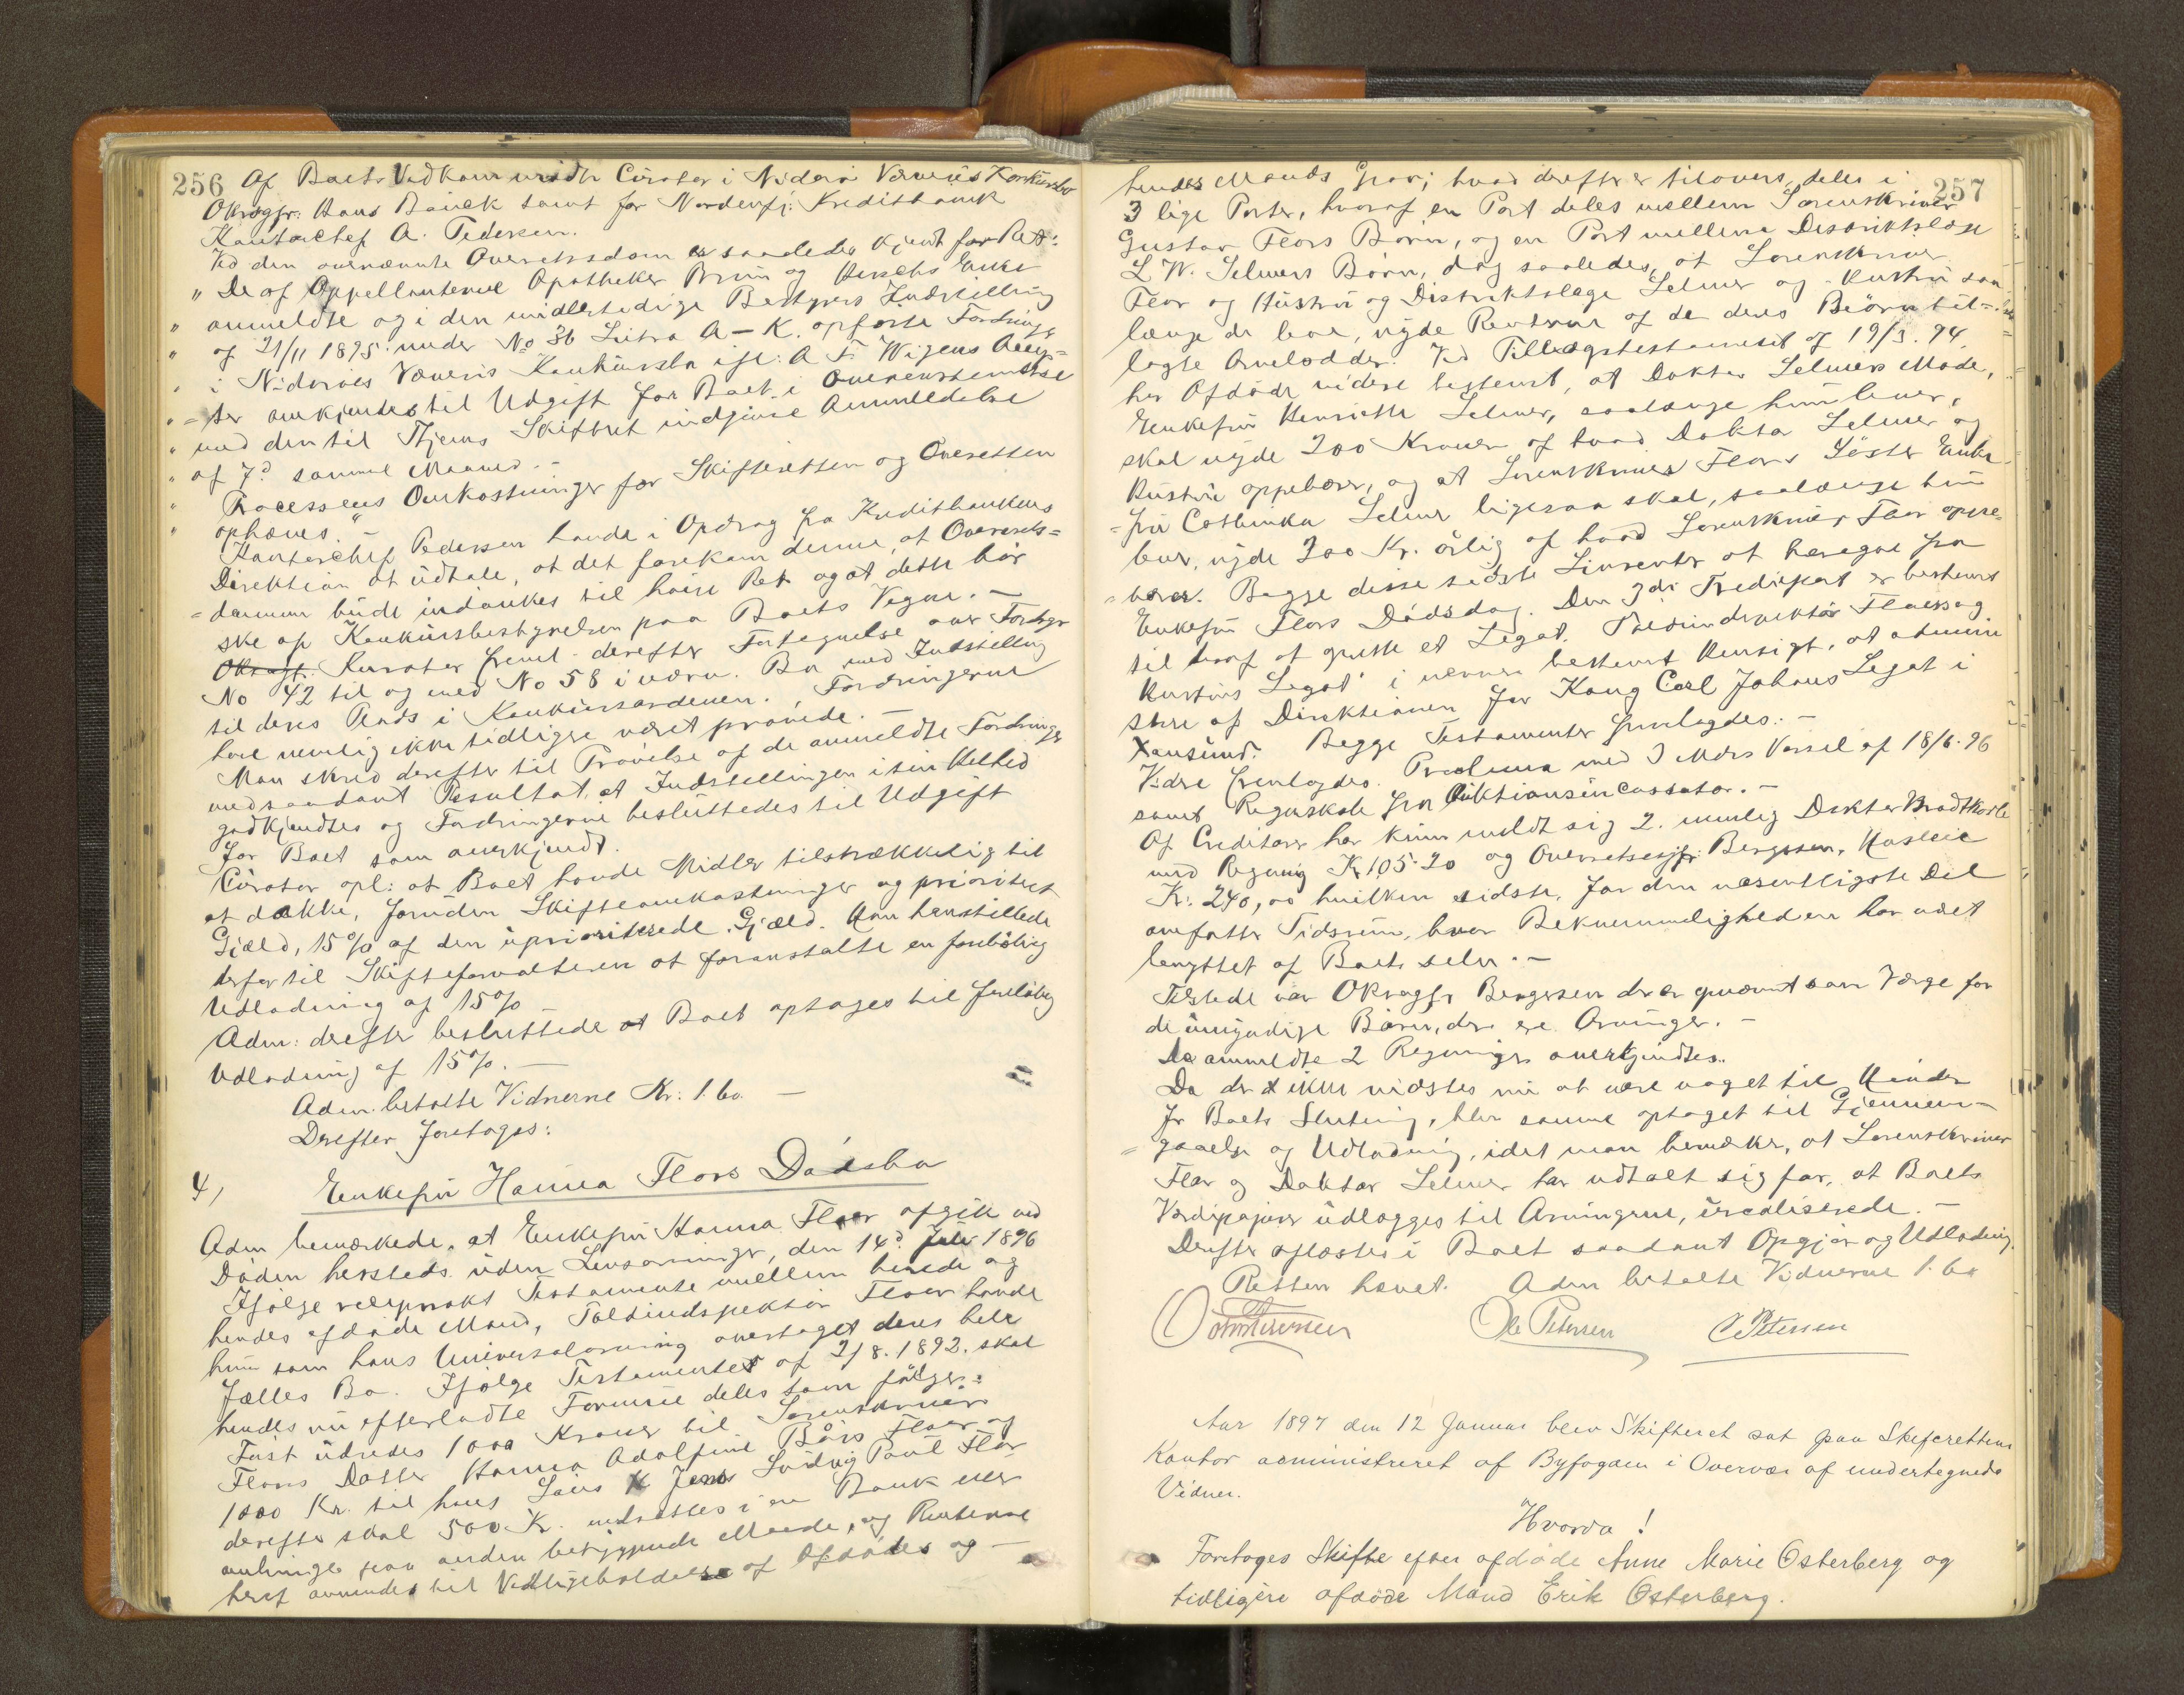 256 Af Boets Vedkommende Curator i Niderøi Væveris Konkursbo
Oksagfr. Hans Bauck samt for Nordenfj. Kreditbank
Kontorchef A. Pedersen.
Ved den ovennævnte Overetsdom er saaledes kjendt for Ret:
" De af Appellanterne Apotheker Brun og Hirschs Enke
" anmeldte og i den midlertidige Bestyrers Indstilling
" af 21/11 1895 under No 36 Litra A – K. opførte Fordringer
" i Niderøies Væveris Konkursbo ifl: A. F. Wigens Accep=
" =ter ankjendes til Udgift for Boet i Overensstemmelse
" med den til Stjerns Skifteret indgivne Anmeldelse
" af 7d samme Maaned. –
" Processens Omkostninger for Skifteretten og Overetten
" ophæves." –
Kontorchef Pedersen havde i Opdrag fra Kreditbankens
Direktion at udtale, at det forekom denne, at Overrets=
=dommen burde indankes til høiere Ret og at dette bør
ske af Konkursbestyrelsen paa Boets Vegne. –
Oksagf. Kurator freml. derefter Fortegnelse over Fordgr
No 42 til og med No 58 i nærv. Bo med Indstilling
til deres Plads i Konkursordenen. Fordringerne
har nemlig ikke tidligere været prøvede. –
Man skred derefter til Prøvelse af de anmeldte Fordringer
med saadant Resultat, at Indstillingen i sin Helhed
godkjendtes og Fordringerne besluttedes til Udgift
for Boet som anerkjendt.
Curator opl: at Boet havde Midler tilstrækkelig til
at dække, foruden Skifteomkostninger og prioriteret
Gjæld, 15% af den uprioriterede Gjæld. Han henstillede
derfor til Skifteforvalteren at foranstalte en foreløbig
Udlodning af 15%
Adm: derefter besluttede at Boet optages til foreløbig
Udlodning af 15%. –
Adm. betalte Vidnerne Kr: 1.60. –
Derefter foretoges:
4, Enkefru Hanna Floors Dødsbo
Adm bemærkede, at Enkefru Hanna Floor afgik ved
Døden hersteds uden Livsarvinger, den 14d Juli 1896
Ifølge reciprokt Testamente mellem hende og
hendes afdøde Mand, Toldindspektør Floor havde
hun som hans Universalarving overtaget deres hele
Fælles Bo. Ifølge Testamentet af 2/8. 1892. skal
hendes nu efterladte Formue deles som følger:
Først udredes 1000 Kroner til Sorenskriver
Floors Datter Hanna Adolfine Bårs Floor og
1000 Kr. til hans Søn Ludvig Paul Flor
derefter skal 500 Kr. indsættes i en Bank eller
anbringes paa anden betryggende Maade, og Renterne
heraf anvendes til Vedligeholdelse af Afdødes og –
257
hendes Mands Grav; hvad derefter er tilovers, deles i
3 lige Parter, hvoraf en Part deles mellem Sorenskriver
Gustav Floors Børn, og en Part mellem Distriktslæge
L. W. Selmers Børn, dog saaledes, at Sorenskriver
Floor og Hustru og Distriktslæge Selmer og Hustru saa
længe de leve, nyde Renterne af de deres Børn til=
lagte Arvelodder. Ved Tillægstestamentet af 19/3. 94.
har Afdøde videre bestemt, at Doktor Selmers Moder,
Enkefru Henriette Selmer, saalænge hun lever,
skal nyde 200 Kroner af hvad Doktor Selmer og
Hustru oppebærer, og at Sorenskriver Floors Søster Enke
=fru Cathinka Selmer ligesaa skal, saalænge hun
lever, nyde 200 Kr. årlig af hvad Sorenskriver Floor oppe=
=bærer. Begge disse sidste Livrenter at beregne fra
Enkefru Floors Dødsdag. Den 3die Trediepart er bestemt
til deraf at oprette et Legat. Toldindspektør Floors og
Hustrus Legat i nærmere bestemt Hensigt, at admini
strere af Direktionen for Kong Carl Johans Legat i
Xansund. Begge Testamenter fremlagdes. –
Videre fremlagdes. Proclama med 3 Mdrs Varsel af 18/8. 96
samt Regnskab fra Auktionsincassator. –
Af Creditorer har kun meldt sig 2. nemlig Doktor Bradtkorb
med Regning Kr 105.20 og Overretssagfr. Bergersen, Husleie
Kr. 240,00 hvilken sidste, for den væsentligste Del
omfatter Tidsrum, hvor Bekvemmeligheden har været
benyttet af Boet selv. –
Tilstede var OKsagfr Bergersen der er opnævnt som Værge for
de umyndige Børn, der ere Arvinger. –
De anmeldte 2 Regninger anerkjendtes.
Da der ikke vidstes nu at være noget til Hinder
for Boets Slutning, blev samme optaget til Gjennem=
=gaaelse og Udlodning, idet man bemærker, at Sorenskriver
Floor og Doktor Selmer har udtalt sig for, at Boets
Værdipapirer udlægges til Arvingerne, urealiserede. –
Derefter aflæstes i Boet saadant Opgjør og Udlodning.
Retten hævet. Adm betalte Vidnerne 1.60
Ole Petersen C Petersen
Aar 1897 den 12 Januar blev Skifteret sat paa Skifterettens
Kontor administreret af Byfogden i Overvær af undertegnede
Vidner.
Hvorda!
Foretoges Skifte efter afdøde Anne Marie Østerberg og
tidligere afdøde Mand Erik Østerberg.